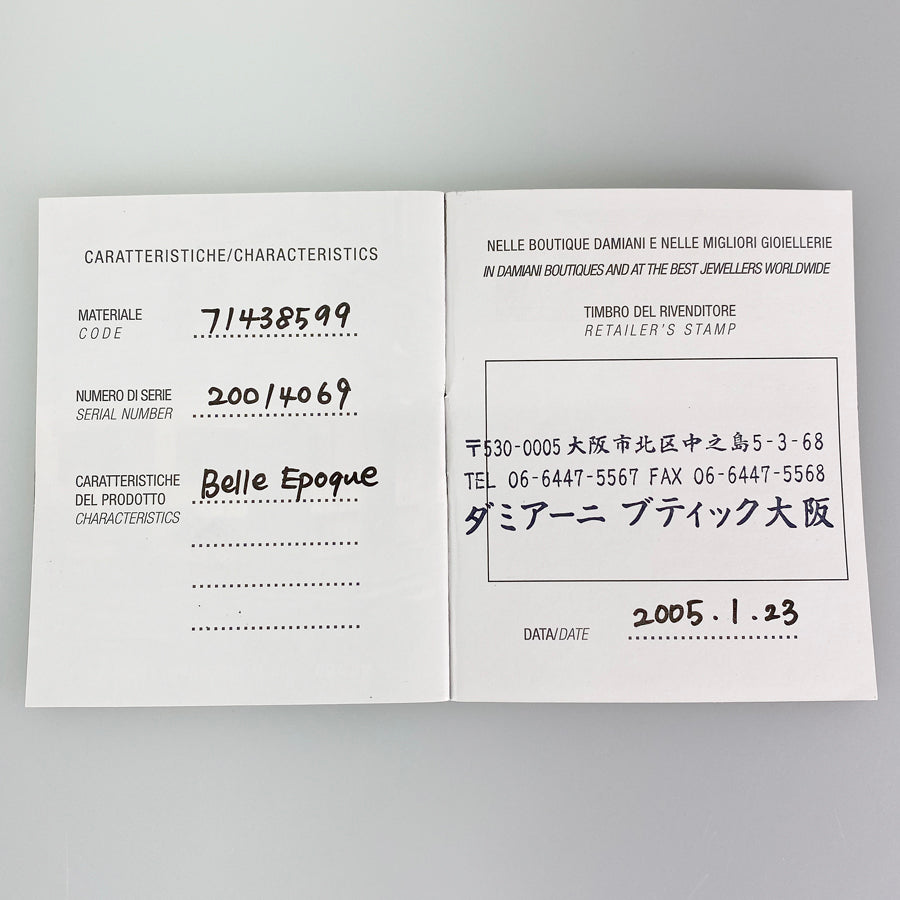 CARATTERISTICHE/CHARACTERISTICS
MATERIALE 71438599
CODE
NUMERO DI SERIE 20014069
SERIAL NUMBER
CARATTERISTICHE Belle Epoque
DEL PRODOTTO
CHARACTERISTICS
NELLE BOUTIQUE DAMIANI E NELLE MIGLIORI GIOIELLERIE
IN DAMIANI BOUTIQUES AND AT THE BEST JEWELLERS WORLDWIDE
TIMBRO DEL RIVENDITORE
RETAILER'S STAMP
〒530-0005 大阪市北区中之島5-3-68
TEL 06-6447-5567 FAX 06-6447-5568
ダミアーニ ブティック大阪
DATA/DATE 2005.1.23